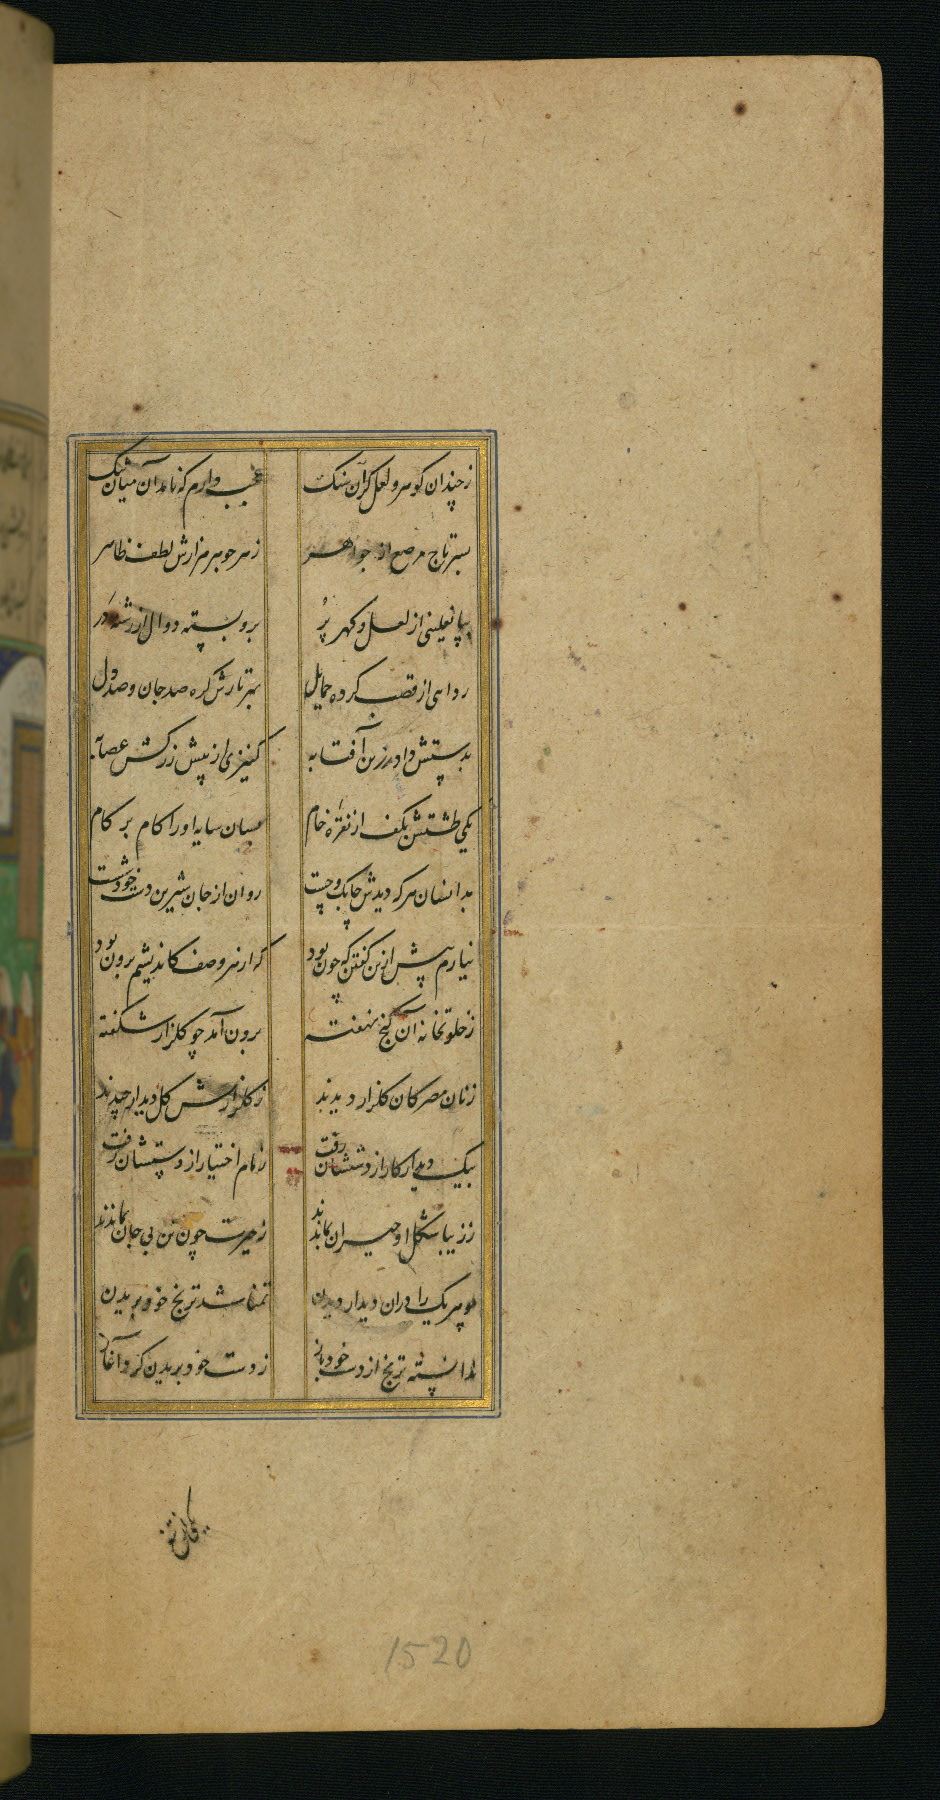 ز چندان کوهر و لعل کران سنک عجب دارم که نامد آن میان تنک
بسر تاج مرصع از جواهر ز هر جوهر هزارش لطف ظاهر
بپا نعلینی از لعل و کهر پر برو بسته دوال از رشته در
ردایی از قصب کرده حمایل بهر تارش کره صد جان و صد دل
بدستش داد زرین آفتابه کنیزی از پیش زرکش عصابه
یکی طشتش بکف از نقره خام بسان سایه او را کام بر کام
بدانسان هر که دیدش چابک و چست روان از جان شیرین دست خود شست
نیارم پیش ازین کفتن که چون بود که از هر وصف کاندیشم برون بود
ز خلوتخانه آن کنج نهفته برون آمد چو کلزار شکفته
زنان مصر کان کلزار دیدند ز کلزارش کل دیدار چیدند
بیک دیدار کار از دستشان رفت زمام اختیار از دستشان رفت
ز زیبا شکل او حیران بماندند ز حیرت چون تن بی جان بماندند
چو هر یک را دران دیدار دیدن تمنا شد ترنج خود بریدن
ندانسته ترنج از دست خود باز ز دست خود بریدن کرد آغاز
یکی از تیغ
1520